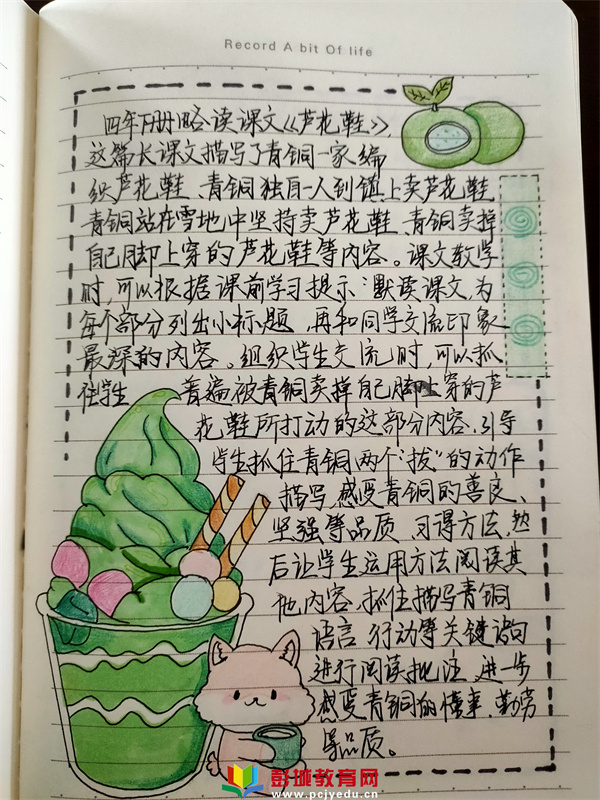 Record A bit Of life
四年下册略读课文《芦花鞋》,
这篇长课文描写了青铜一家编
织芦花鞋、青铜独自一人到镇上卖芦花鞋
青铜站在雪地中坚持卖芦花鞋、青铜卖掉
自己脚上穿的芦花鞋等内容。课文教学
时,可以根据课前学习提示:默读课文,为
每个部分列出小标题,再和同学交流印象
最深的内容。组织学生交流时,可以抓
住学生 普遍被青铜卖掉自己脚上穿的芦
花鞋所打动的这部分内容,引导
学生抓住青铜两个“拔”的动作
描写,感受青铜的善良、
坚强等品质,习得方法,然
后让学生运用方法阅读其
他内容,抓住描写青铜
语言 行动等关键词句
进行阅读批注,进一步
感受青铜的懂事、勤劳
等品质。
彭城教育网
www.pcjyedu.cn